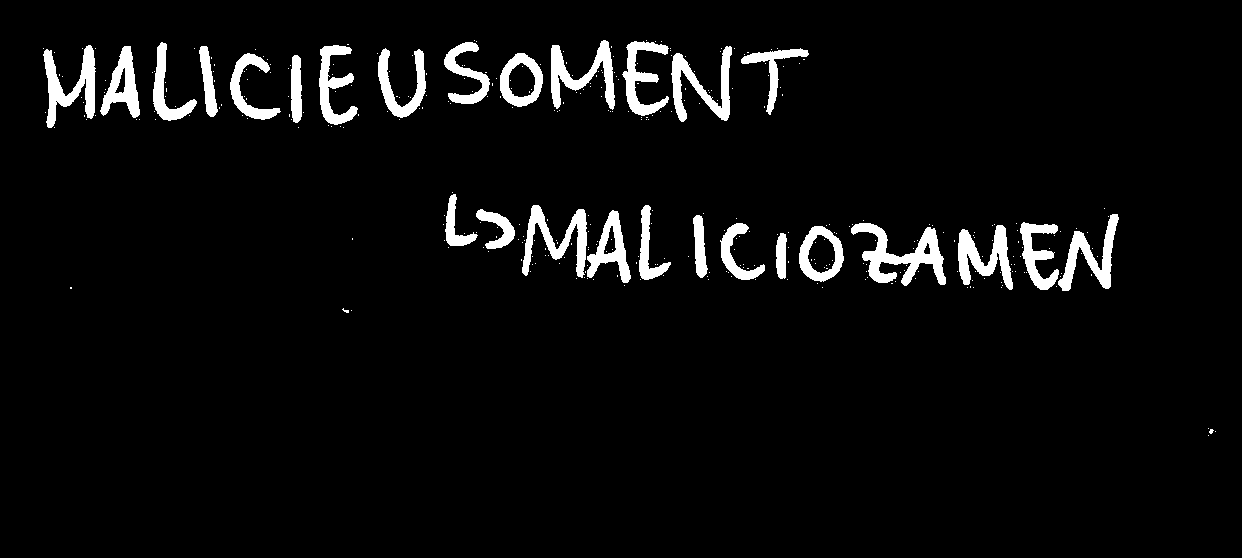 MALICIEUSOMENT
↳MALICIOZAMEN